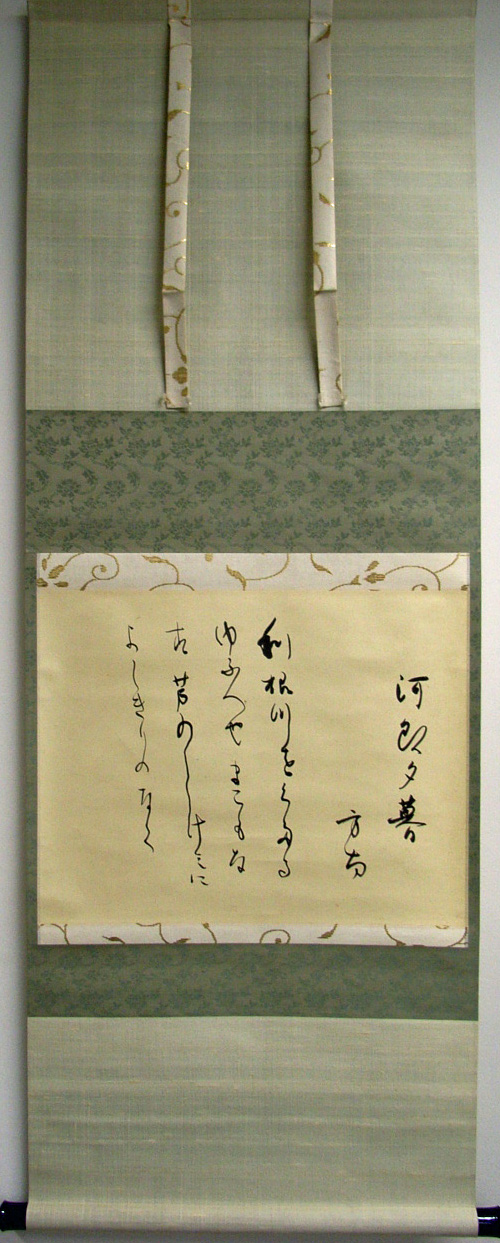 河夕暮
方南
利根川をくだる
ゆふへやまこもな
芦のしけみに
よしきりのなく